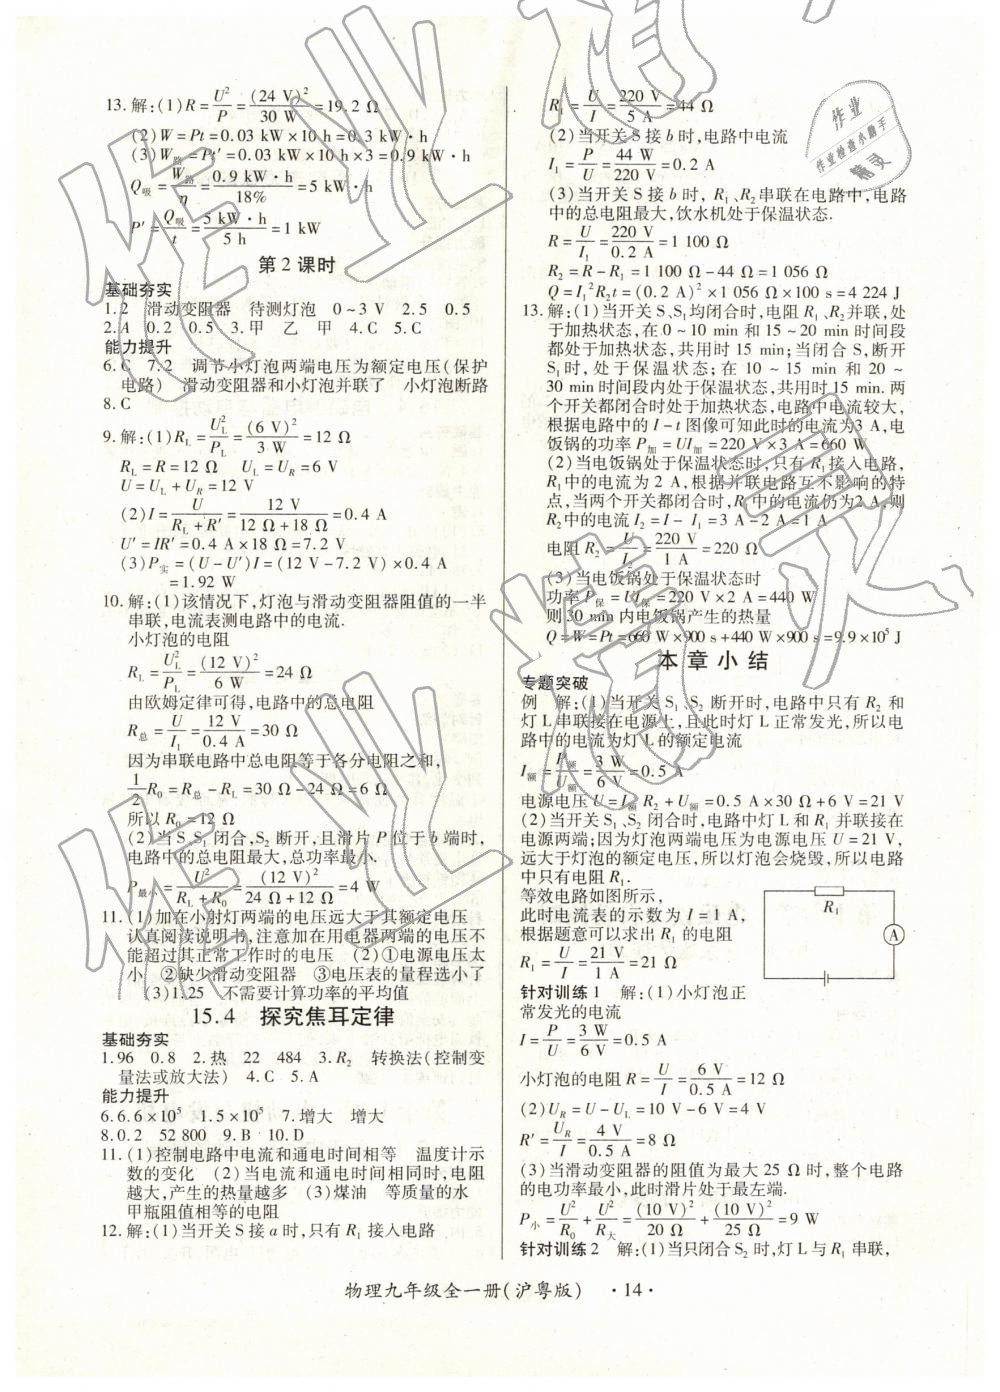 13.解:(1)R=U²/P=(24 V)²/30 W=19.2 Ω
(2)W=Pt=0.03 kW×10 h=0.3 kW·h
(3)W路=Pt′=0.03 kW×10 h×3=0.9 kW·h
Q吸=W路/η=0.9 kW·h/18%=5 kW·h
P′=Q吸/t=5 kW·h/5 h=1 kW
第2课时
基础夯实
1.2 滑动变阻器 待测灯泡 0~3 V 2.5 0.5
2.A 0.2 0.5 3.甲 乙 甲 4.C 5.C
能力提升
6.C 7.2 调节小灯泡两端电压为额定电压(保护
电路) 滑动变阻器和小灯泡并联了 小灯泡断路
8.C
9.解:(1)R_L=U_L²/P_L=(6 V)²/3 W=12 Ω
R_L=R=12 Ω U_L=U_R=6 V
U=U_L+U_R=12 V
(2)I=U/(R_L+R′)=12 V/(12 Ω+18 Ω)=0.4 A
U′=IR′=0.4 A×18 Ω=7.2 V
(3)P实=(U-U′)I=(12 V-7.2 V)×0.4 A
=1.92 W
10.解:(1)该情况下,灯泡与滑动变阻器阻值的一半
串联,电流表测电路中的电流.
小灯泡的电阻
R_L=U_L²/P_L=(12 V)²/6 W=24 Ω
由欧姆定律可得,电路中的总电阻
R总=U/I₁=12 V/0.4 A=30 Ω
因为串联电路中总电阻等于各分电阻之和,
½R₀=R总-R_L=30 Ω-24 Ω=6 Ω
所以R₀=12 Ω
(2)当S、S₁闭合,S₂断开,且滑片P位于b端时,
电路中的总电阻最大,总功率最小.
P最小=U²/(R_L+R₀)=(12 V)²/(24 Ω+12 Ω)=4 W
11.(1)加在小射灯两端的电压远大于其额定电压
认真阅读说明书,注意加在用电器两端的电压不
能超过其正常工作时的电压 (2)①电源电压太
小 ②缺少滑动变阻器 ③电压表的量程选小了
(3)1.25 不需要计算功率的平均值
15.4 探究焦耳定律
基础夯实
1.96 0.8 2.热 22 484 3.R₂ 转换法(控制变
量法或放大法) 4.C 5.A
能力提升
6.6.6×10⁵ 1.5×10⁵ 7.增大 增大
8.0.2 52 800 9.B 10.D
11.(1)控制电路中电流和通电时间相等 温度计示
数的变化 (2)当电流和通电时间相同时,电阻
越大,产生的热量越多 (3)煤油 等质量的水
甲瓶阻值相等的电阻
12.解:(1)当开关S接a时,只有R₁接入电路
R₁=U/I=220 V/5 A=44 Ω
(2)当开关S接b时,电路中电流
I₁=P/U=44 W/220 V=0.2 A
(3)当开关S接b时,R₁、R₂串联在电路中,电路
中的总电阻最大,饮水机处于保温状态.
R=U/I₁=220 V/0.2 A=1 100 Ω
R₂=R-R₁=1 100 Ω-44 Ω=1 056 Ω
Q=I₁²R₂t=(0.2 A)²×1 056 Ω×100 s=4 224 J
13.解:(1)当开关S、S₁均闭合时,电阻R₁、R₂并联,处
于加热状态,在0~10 min和15~20 min时间段
都处于加热状态,共用时15 min;当闭合S,断开
S₁时,处于保温状态;在10~15 min和20~
30 min时间段内处于保温状态,共用时15 min.两
个开关都闭合时处于加热状态,电路中电流较大,
根据电路中的I-t图像可知此时的电流为3 A,电
饭锅的功率P加=UI加=220 V×3 A=660 W
(2)当电饭锅处于保温状态时,只有R₁接入电路,
R₁中的电流为2 A,根据并联电路互不影响的特
点,当两个开关都闭合时,R₁中的电流仍为2 A,则
R₂中的电流I₂=I-I₁=3 A-2 A=1 A
电阻R₂=U/I₂=220 V/1 A=220 Ω
(3)当电饭锅处于保温状态时
功率P保=UI保=220 V×2 A=440 W
则30 min内电饭锅产生的热量
Q=W=Pt=660 W×900 s+440 W×900 s=9.9×10⁵ J
本章小结
专题突破
例 解:(1)当开关S₁、S₂断开时,电路中只有R₂和
灯L串联接在电源上,且此时灯L正常发光,所以电
路中的电流为灯L的额定电流
I额=P额/U额=3 W/6 V=0.5 A
电源电压U=I额R₂+U额=0.5 A×30 Ω+6 V=21 V
(2)当开关S₁、S₂闭合时,电路中灯L和R₁并联接在
电源两端;因为灯泡两端电压为电源电压U=21 V,
远大于灯泡的额定电压,所以灯泡会烧毁,所以电路
中只有电阻R₁.
等效电路如图所示,
此时电流表的示数为I=1 A,
根据题意可以求出R₁的电阻
R₁=U/I=21 V/1 A=21 Ω
R₁
A
针对训练1 解:(1)小灯泡正
常发光的电流
I=P/U=3 W/6 V=0.5 A
小灯泡的电阻R=U/I=6 V/0.5 A=12 Ω
(2)U_R=U-U_L=10 V-6 V=4 V
R′=U_R/I=4 V/0.5 A=8 Ω
(3)当滑动变阻器的阻值为最大25 Ω时,整个电路
的电功率最小,此时滑片处于最左端.
P小=U²/R₀+U²/R大=(10 V)²/20 Ω+(10 V)²/25 Ω=9 W
针对训练2 解:(1)当只闭合S₂时,灯L与R₁串联,
物理九年级全一册(沪粤版) ·14·
作业
作业检查小助手
精灵
作业精灵